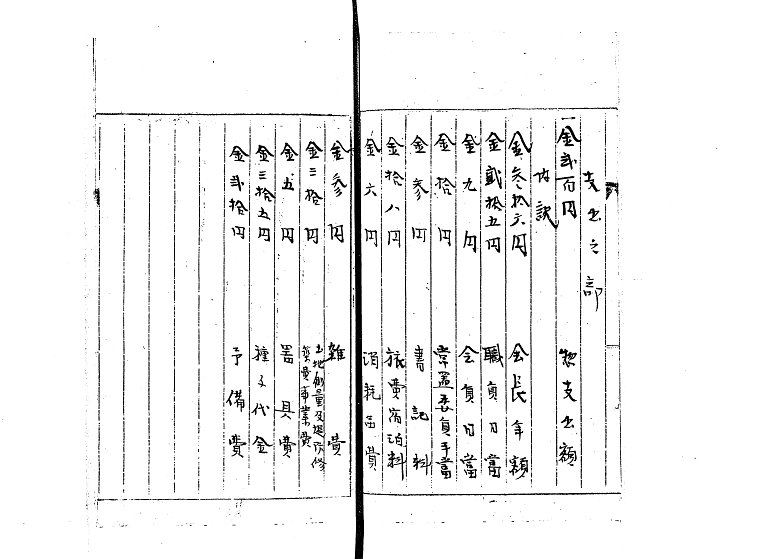 支出之部
一金弐百円 惣支出額
内訳
金参拾六円 会長年額
金貳拾五円 職員日當
金九円 会員日當
金拾円 常置委員手當
金参円 書記料
金拾八円 旅費宿泊料
金六円 消耗品費
金参円 雑費
金三拾円 土地測量及堤防修築費事業費
金五円 器具費
金三拾五円 種子代金
金弐拾円 予備費